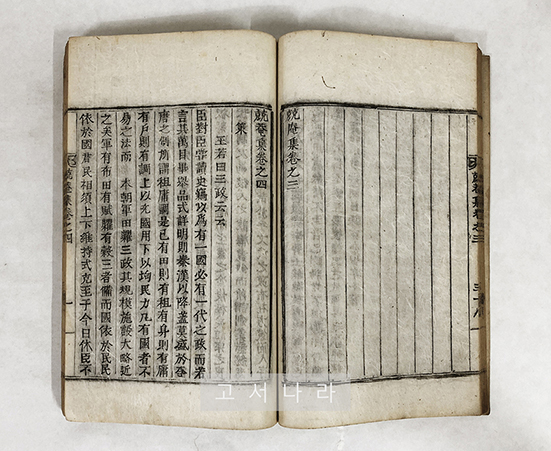 兢菴集卷之三 三十八
兢庵集卷之三
兢菴集卷之四
策
王若曰三政云云
臣對臣嘗讀史竊以爲有一國必有一代之政而若
言其萬目畢擧品式詳明則秦漢以降盖莫盛於李
唐之制所謂租庸調是已有田則有租有身則有庸
有戶則有調上以充國用下以均民力凡有國者不
易之法而 本朝軍田糴三政其規模施設大略近
之矣軍有布田有賦糴有穀三者備而國依於民民
依於國君民相須上下維持式克至于今日休臣不
兢菴集卷之四 一
고서나라